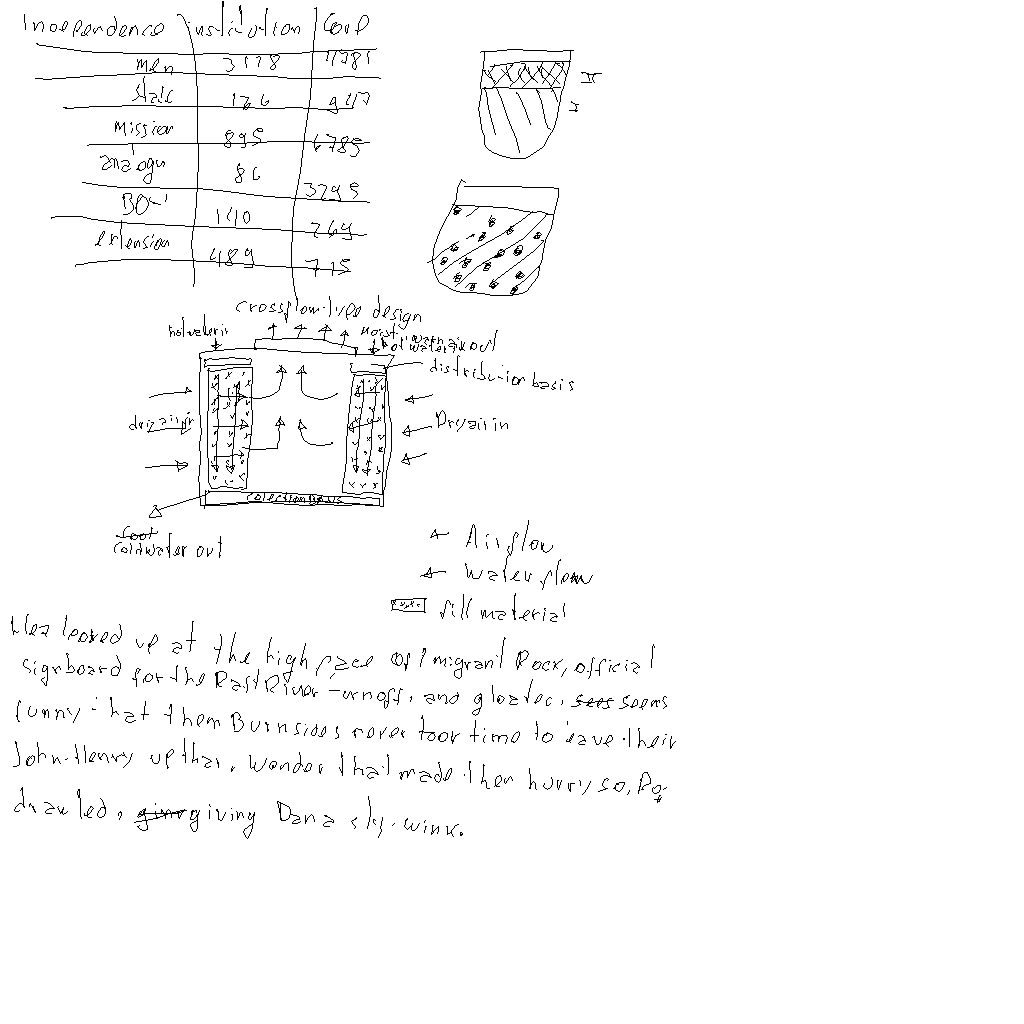 Independence institution Goul
men 3178 4785
State 126 947
mission 895 6785
analogu 86 3295
BOW 140 269
extension 489 715
II
I
crossflow-type design
hotwater in
moist warm air out
hotwater in
distribution basis
dry air in
Dry air in
colection basis
cool
coldwater out
Airflow
Water flow
fill material
Wes looked up at the high face of Imigrant Rock, official
signboard for the Raft River turnoff, and gloated, sees seems
funny that them Burnsides never took time to leave their
John-Henry up thar. Wonder that made them hurry so, Pa
drawled, givr giving Dana sly wink.